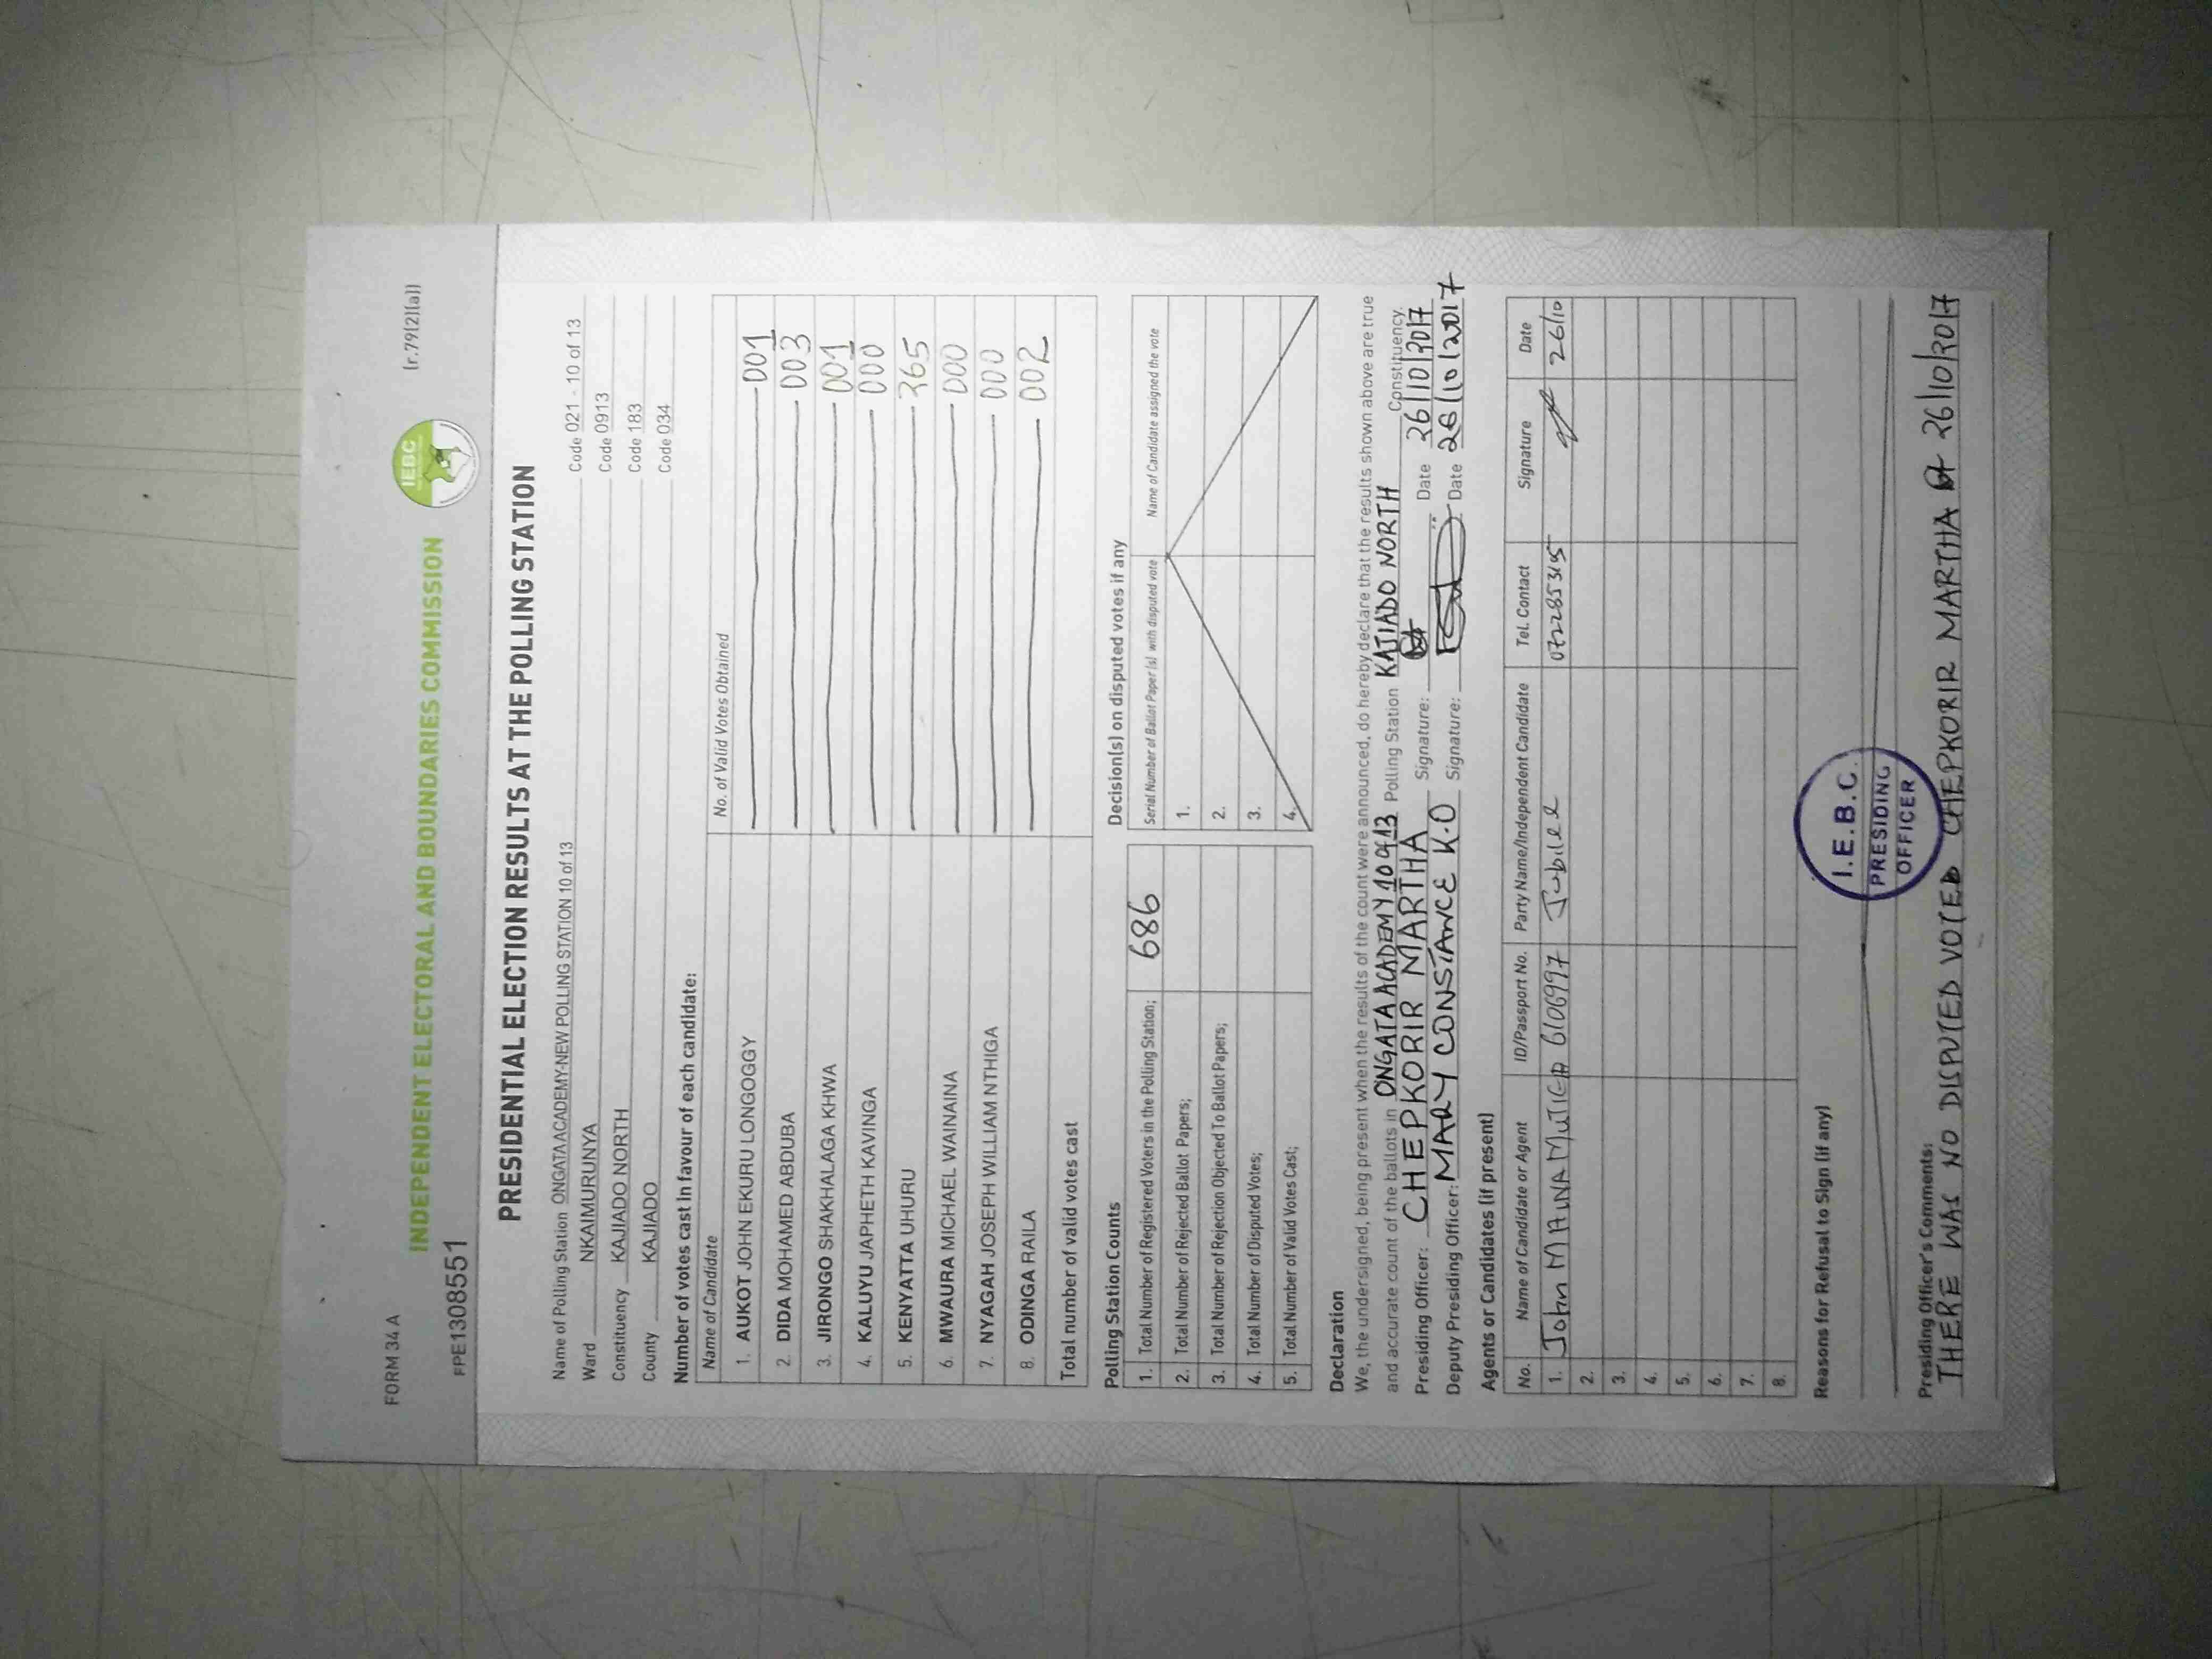 FORM 34 A
(r.79(2)(a))
INDEPENDENT ELECTORAL AND BOUNDARIES COMMISSION
IEBC
PPE1308551
PRESIDENTIAL ELECTION RESULTS AT THE POLLING STATION
Name of Polling Station ONGATA ACADEMY-NEW POLLING STATION 10 of 13 Code 021 - 10 of 13
Ward NKAIMURUNYA Code 0913
Constituency KAJIADO NORTH Code 183
County KAJIADO Code 034
Number of votes cast in favour of each candidate:
Name of Candidate No. of Valid Votes Obtained
1. AUKOT JOHN EKURU LONGOGGY 001
2. DIDA MOHAMED ABDUBA 003
3. JIRONGO SHAKHALAGA KHWA 001
4. KALUYU JAPHETH KAVINGA 000
5. KENYATTA UHURU 365
6. MWAURA MICHAEL WAINAINA 000
7. NYAGAH JOSEPH WILLIAM NTHIGA 000
8. ODINGA RAILA 002
Total number of valid votes cast
Polling Station Counts
1. Total Number of Registered Voters in the Polling Station; 686
2. Total Number of Rejected Ballot Papers;
3. Total Number of Rejection Objected To Ballot Papers;
4. Total Number of Disputed Votes;
5. Total Number of Valid Votes Cast;
Decision(s) on disputed votes if any
Serial Number of Ballot Paper (s) with disputed vote Name of Candidate assigned the vote
1.
2.
3.
4.
Declaration
We, the undersigned, being present when the results of the count were announced, do hereby declare that the results shown above are true
and accurate count of the ballots in ONGATA ACADEMY 10 of 13 Polling Station KAJIADO NORTH Constituency.
Presiding Officer: CHEPKORIR MARTHA Signature: Date 26/10/2017
Deputy Presiding Officer: MARY CONSTANCE K.O Signature: Date 26/10/2017
Agents or Candidates (if present)
No. Name of Candidate or Agent ID/Passport No. Party Name/Independent Candidate Tel. Contact Signature Date
1. John MAINA 6106997 Jubilee 0722853165 26/10
2.
3.
4.
5.
6.
7.
8.
Reasons for Refusal to Sign (if any)
I.E.B.C.
PRESIDING
OFFICER
Presiding Officer's Comments:
THERE WAS NO DISPUTED VOTED CHEPKORIR MARTHA 26/10/2017